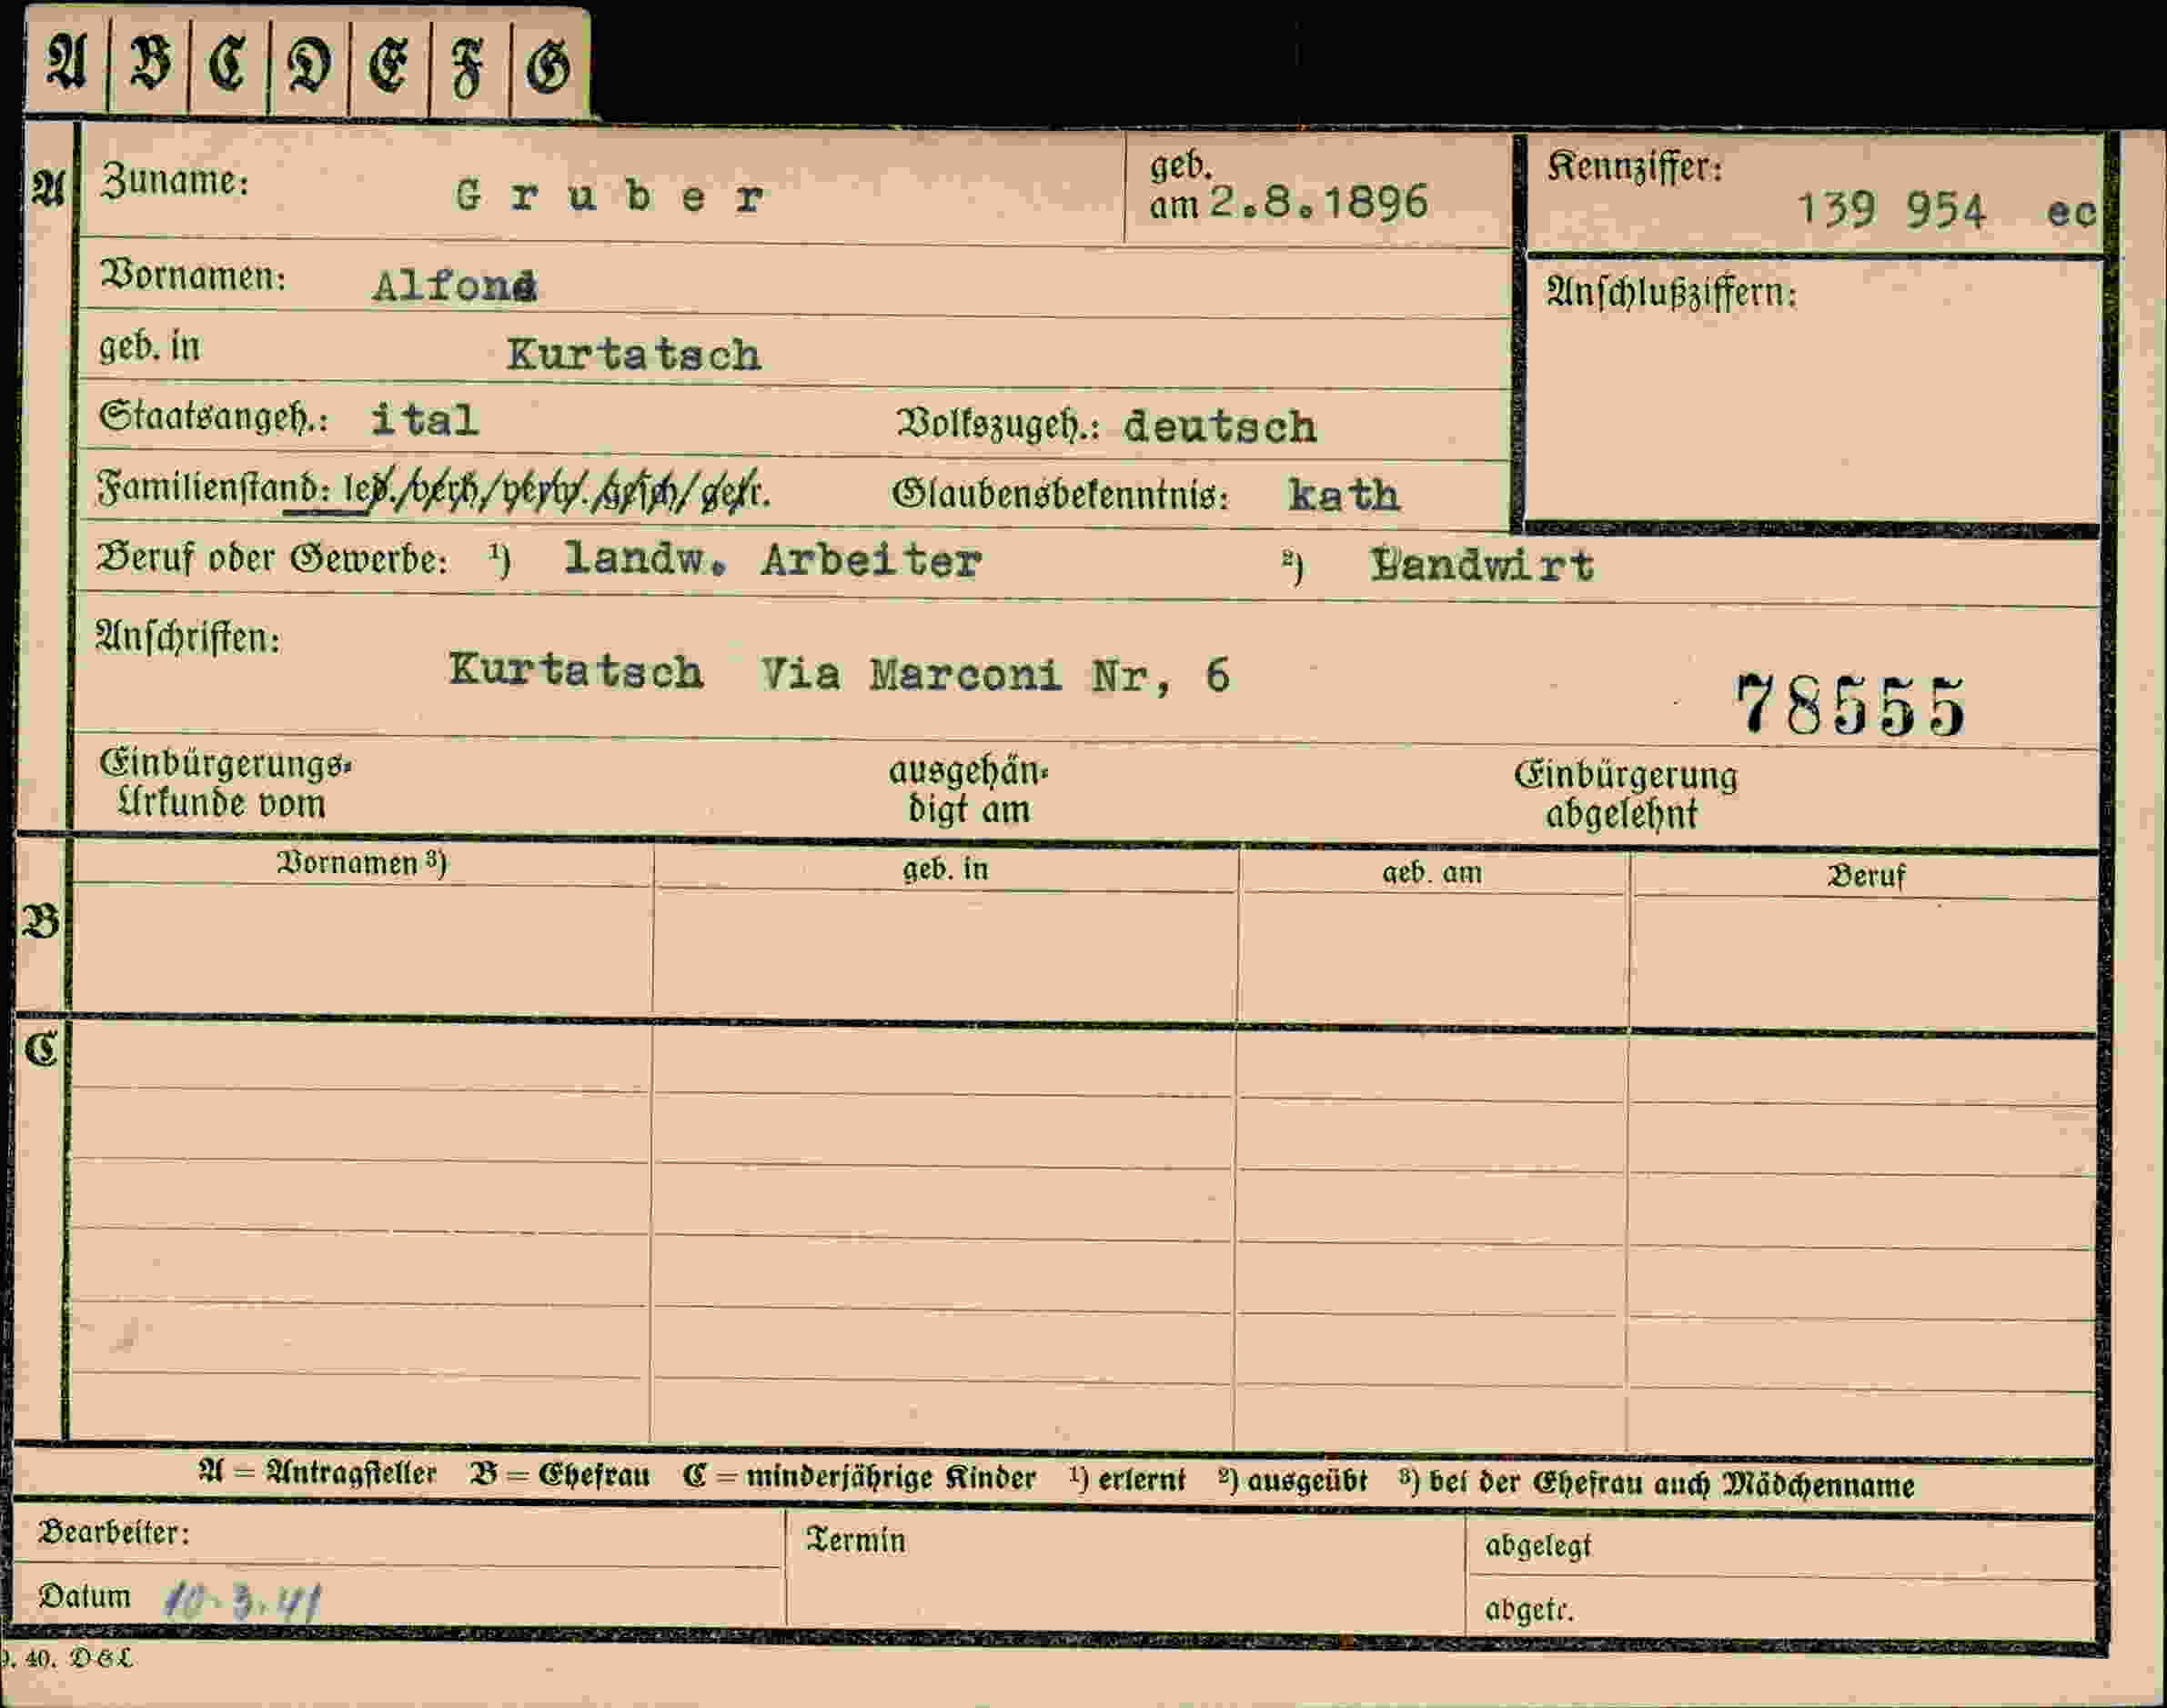 A B C D E F G
A Zuname: Gruber geb. am 2.8.1896 Kennziffer: 139 954 ec
Vornamen: Alfons Anschlußziffern:
geb. in Kurtatsch
Staatsangeh.: ital Volkszugeh.: deutsch
Familienstand: led./verh./verw./gesch./getr. Glaubensbekenntnis: kath
Beruf oder Gewerbe: ¹) landw. Arbeiter ²) Landwirt
Anschriften:
Kurtatsch Via Marconi Nr, 6 78555
Einbürgerungs- ausgehän- Einbürgerung
Urkunde vom digt am abgelehnt
Vornamen ³) geb. in geb. am Beruf
B
C
A = Antragsteller B = Ehefrau C = minderjährige Kinder ¹) erlernt ²) ausgeübt ³) bei der Ehefrau auch Mädchenname
Bearbeiter: Termin abgelegt
Datum 10.3.41 abgetr.
40. D&L